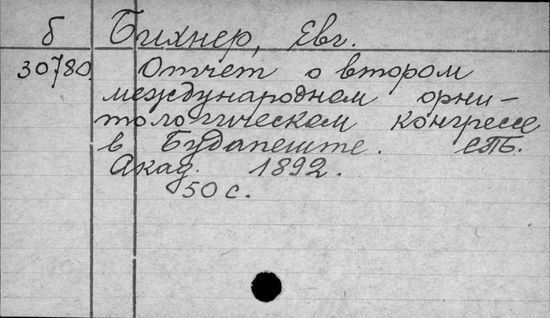 б Бихнер, Евг.
30780. Отчет о втором
международном орни-
тологическом конгрессе
в Будапеште. СПб.
Акад. 1892.
50 с.